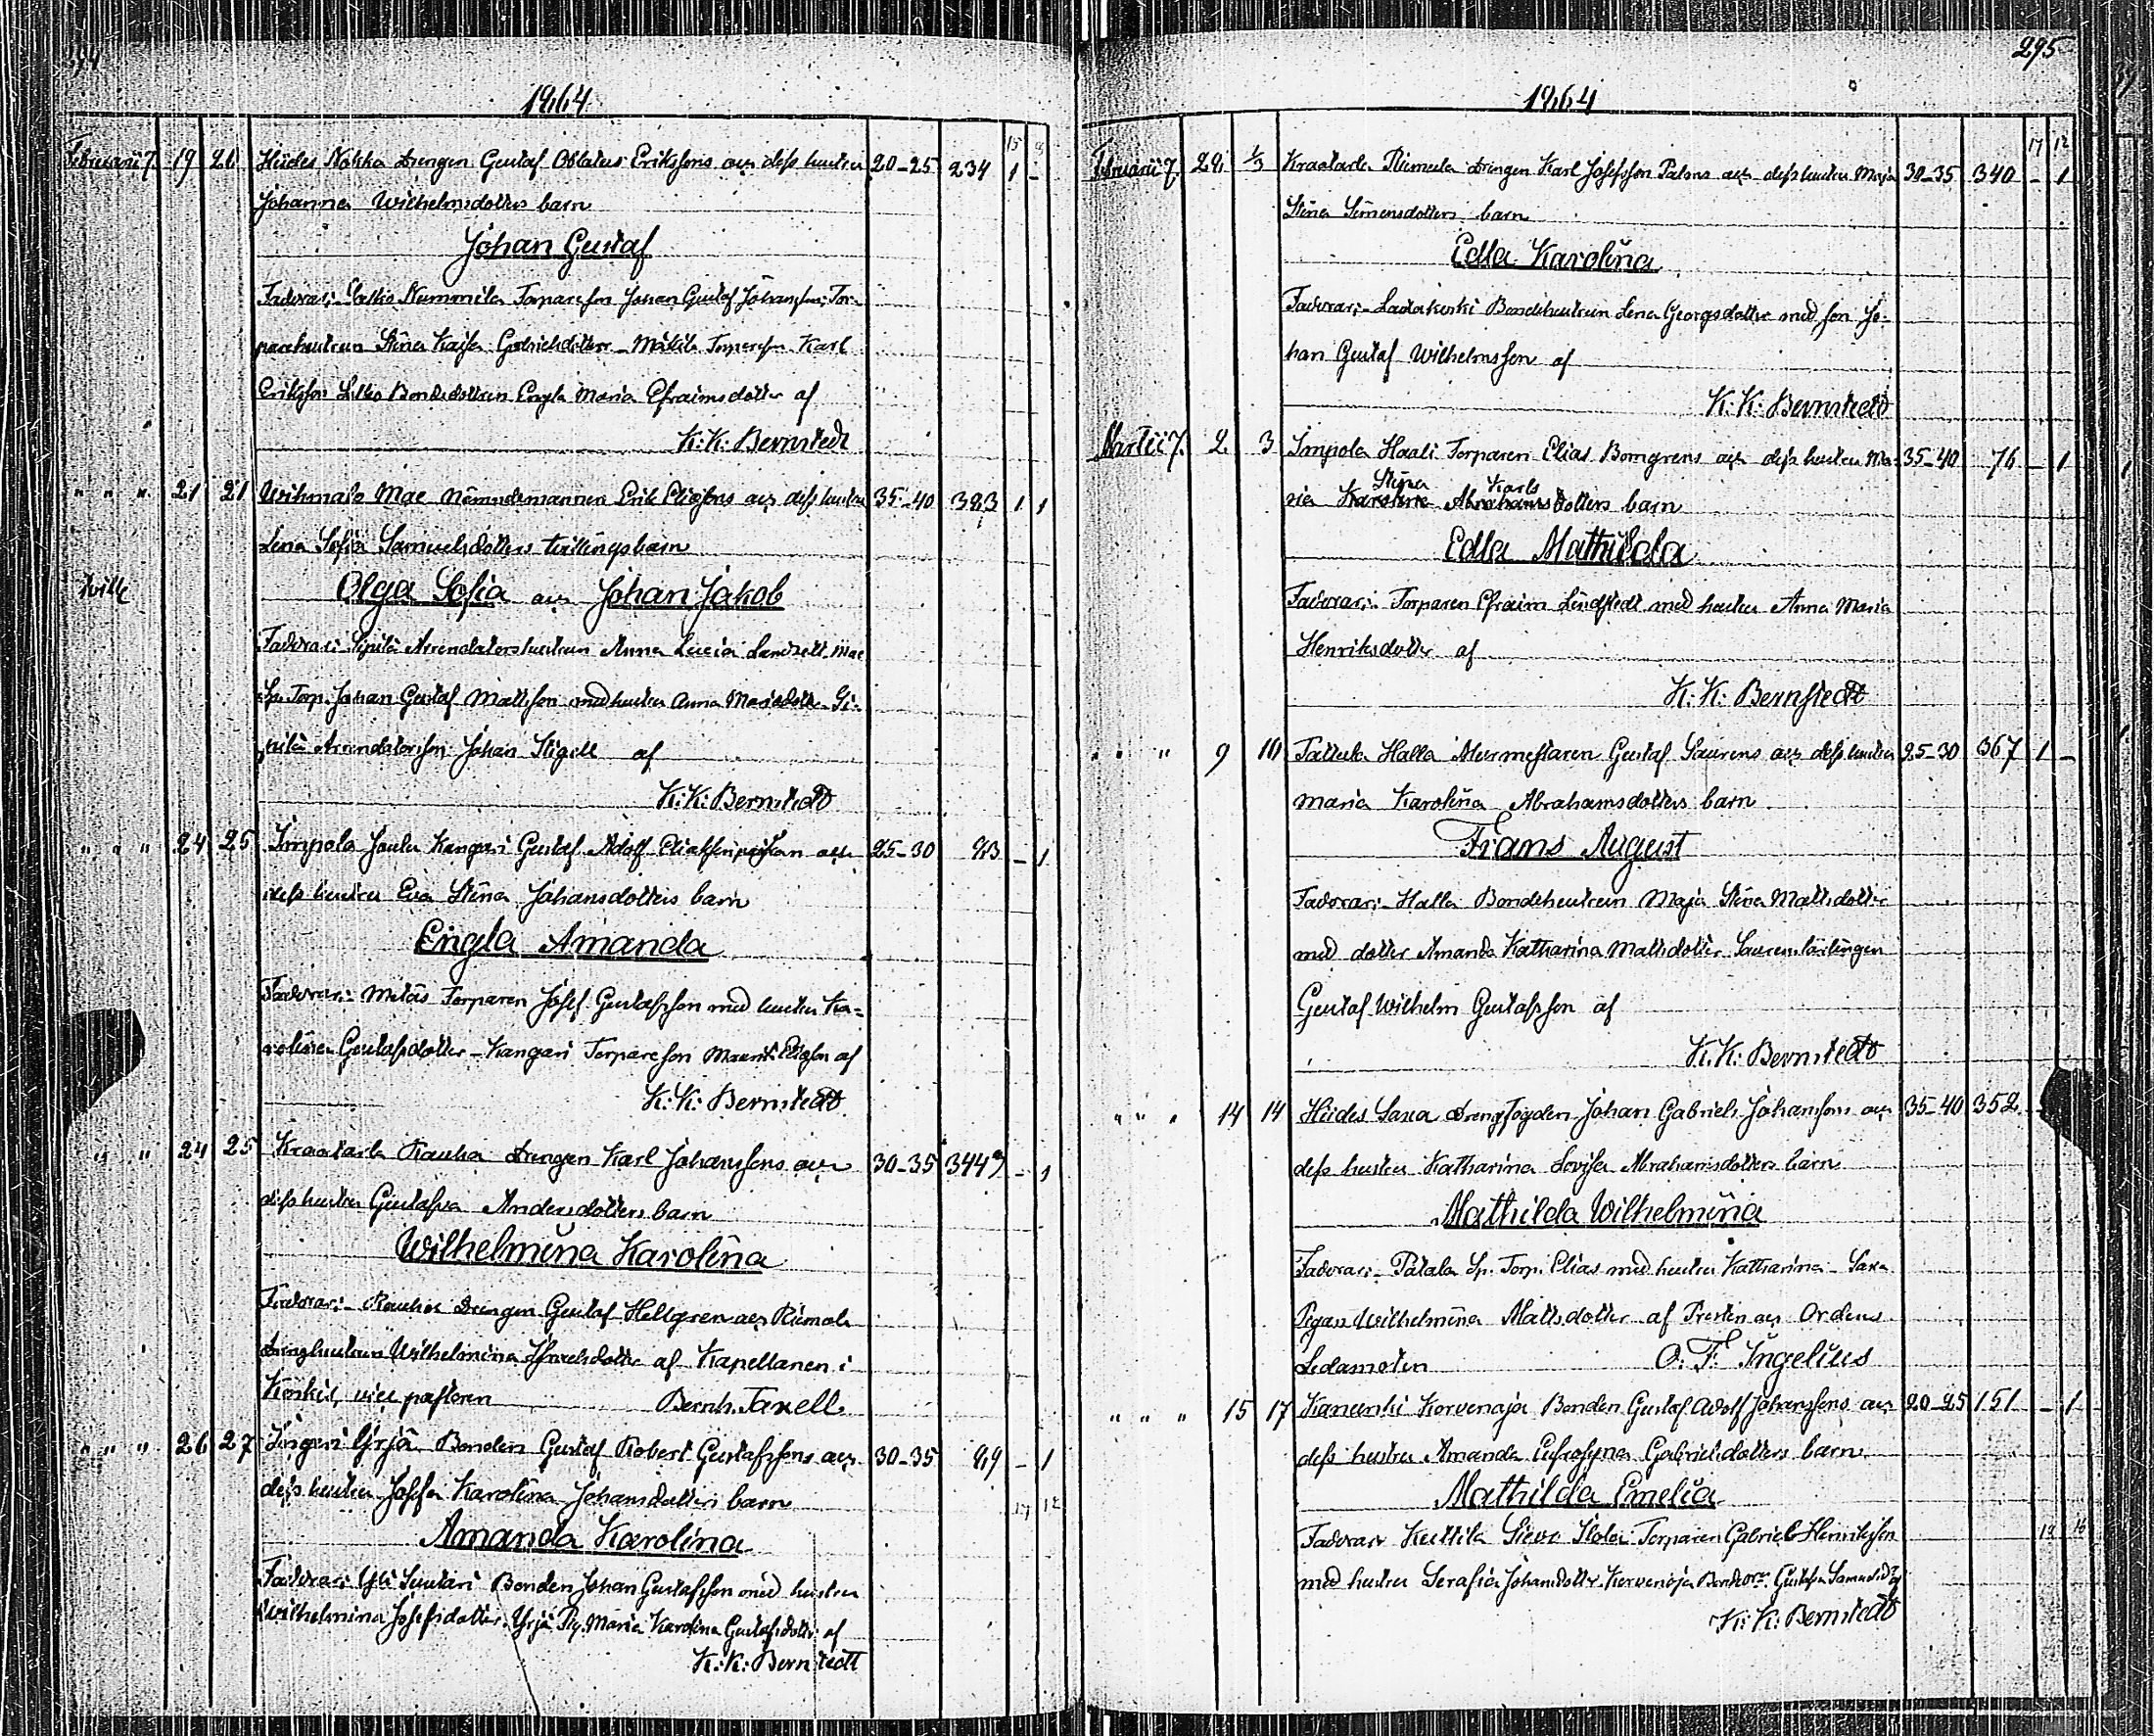 294
1864
Februarii 7. 19 21 Hiides Nokka Drengen Gustaf Oblatus Erikssons och dess hustru 20-25 234 1 -
Johanna Wilhelmsdotters barn
Johan Gustaf
Faddrar: Nummila Torparesson Johan Gustaf Johansson, Tor-
parehustrun Stina Kaisa Gabrielsdotter - Mäkilä Torparesson Karl
Eriksson Bondedottren Engla Maria Efraimsdotter af
K: K: Bernstedt
" " " 21 21 Wihmalo Mae Nämndemannen Erik Eliassons och dess hustru 35-40 383 1 1
Lena Sofia Samuelsdotters tvillingsbarn
Olga Sofia och Johan Jakob
Faddrar: Sipilä Arrendatorshustrun Anna Lucia Mae
Sp. Torp. Johan Gustaf Mattsson med hustru Anna - Si-
pilä Arrendatorsson Johan Stigell af
K: K: Bernstedt
" " " 24 25 Impola Jaula Kangari Gustaf Adolf Eliasson och 25-30 93 - 1
dess hustru Eva Stina Johansdotters barn
Engla Amanda
Faddrar: Torparen Josef Gustafsson med hustru Ka-
rolina Gustafsdotter - Kangari Torpareson Eliasson af
K: K: Bernstedt
" " 24 25 Kraatarla Rauha Drengen Karl Johanssons och 30-35 344 - 1
dess hustru Gustafva Andersdotters barn
Wilhelmina Karolina
Faddrar: Rauha Drengen Gustaf Hellgren och Riimala
Drenghustrun Wilhelmina Israelsdotter af Kapellanen i
Koskis, vice pastoren Bernh. Taxell
" " " 26 27 Yrjä Bonden Gustaf Robert Gustafssons och 30-35 99 - 1
dess hustru Josefa Karolina Johansdotters barn
Amanda Karolina
Faddrar: Yli Suutari Bonden Johan Gustafsson med hustru
Wilhelmina Josefsdotter, Yrjä Pig. Maria Karolina Gustafsdotter af
K: K: Bernstedt
295
1864
Februarii 7. 28 1/3 Kraatarla Riimala Drengen Karl Josefsson Palons och dess hustru Maja 30-35 340 - 1
Stina Simonsdotters barn
Edla Karolina
Faddrar: Bondehustrun Lena Georgsdotter med son Jo-
han Gustaf Wilhelmsson af
K: K: Bernstedt
Martii 7. 2 3 Impola Haali Torparen Elias Bomgrens och dess hustru Ma- 35-40 76 - 1
Stina Karls
ria Karolina Abrahamsdotters barn
Edla Mathilda
Faddrar: Torparen Efraim Lindstedt med hustru Anna Maria
Henriksdotter af
K: K: Bernstedt
" " " 9 10 Tattula Halla Murmestaren Gustaf Saurens och dess hustru 25-30 367 1 -
Maria Karolina Abrahamsdotters barn
Frans August
Faddrar: Halla Bondehustrun Maja Stina Mattsdotter
med dotter Amanda Katharina Mattsdotter Saurens lärlingen
Gustaf Wilhelm Gustafsson af
K: K: Bernstedt
" " " 14 14 Hiides Saxa Drengfogden Johan Gabriel Johanssons och 35-40 352
dess hustru Katharina Lovisa Abrahamsdotters barn
Mathilda Wilhelmina
Faddrar: Patala Sp. Torp. Elias med hustru Katharina - Saxa
Pigan Wilhelmina Mattsdotter af Prosten och Ordens
Ledamoten O. F. Ingelius
" " " 15 17 Kanunki Korvenoja Bonden Gustaf Adolf Johanssons och 20-25 151 - 1
dess hustru Amanda Eufrosyna Gabrielsdotters barn
Mathilda Emelia
Faddrar Kuttila Torparen Gabriel Henriksson
med hustru Serafia Johansdotter. Korvenoja Gustafva af
K: K: Bernstedt